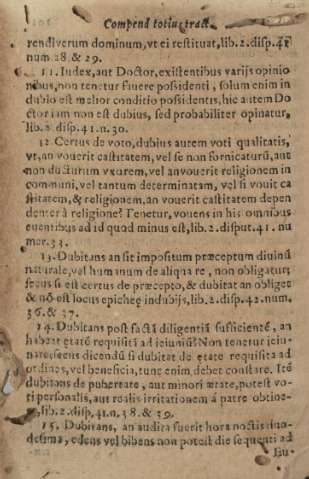 Compend totius tract.
rem al verum dominum, vt ei restituat, lib. 2. disp. 41
num 28. & 29.
11. Iudex, aut Doctor, existentibus varijs opinio
nibus, non tenetur fauere possidenti, solum enim in
dubio est melior conditio possidentis, hic autem Do
ctor iam non est dubius, sed probabiliter opinatur,
lib. 2. disp. 41. n. 30.
12. Certus de voto, dubius autem voti qualitatis,
vt, an vouerit castitatem, vel se non fornicaturũ, aut
non ducturum vxorem, vel an vouerit religionem in
communi, vel tantum determinatam, vel si vouit ca
stitatem, & religionem, an vouerit castitatem depen
denter à religione? Tenetur, vouens in his omnibus
euentibus ad id quod minus est, lib. 2. disput. 41. nu
mer. 33.
13. Dubitans an sit impositum præceptum diuinũ
naturale, vel humanum de aliqua re, non obligatur;
secus si est certus de præcepto, & dubitat an obliget
& nõ est locus epicheę in dubijs, lib. 2. disp. 42. num.
36. & 37.
14. Dubitans post factã diligentiã sufficientẽ, an
habeat ętatẽ requisitã ad ieiuniũ? Non tenetur ieiu-
nare; secus dicendũ si dubitat de ętate requisita ad
ordines, vel beneficia, tunc enim debet constare. Itẽ
dubitans de pubertate, aut minori ætate, potest vo-
ti personalis, aut realis irritationem á patre obtine-
lib. 2. disp. 41. n. 38. & 39.
15. Dubitans, an audita fuerit hora noctis duo-
decima, edens vel bibens non potest die sequenti ad